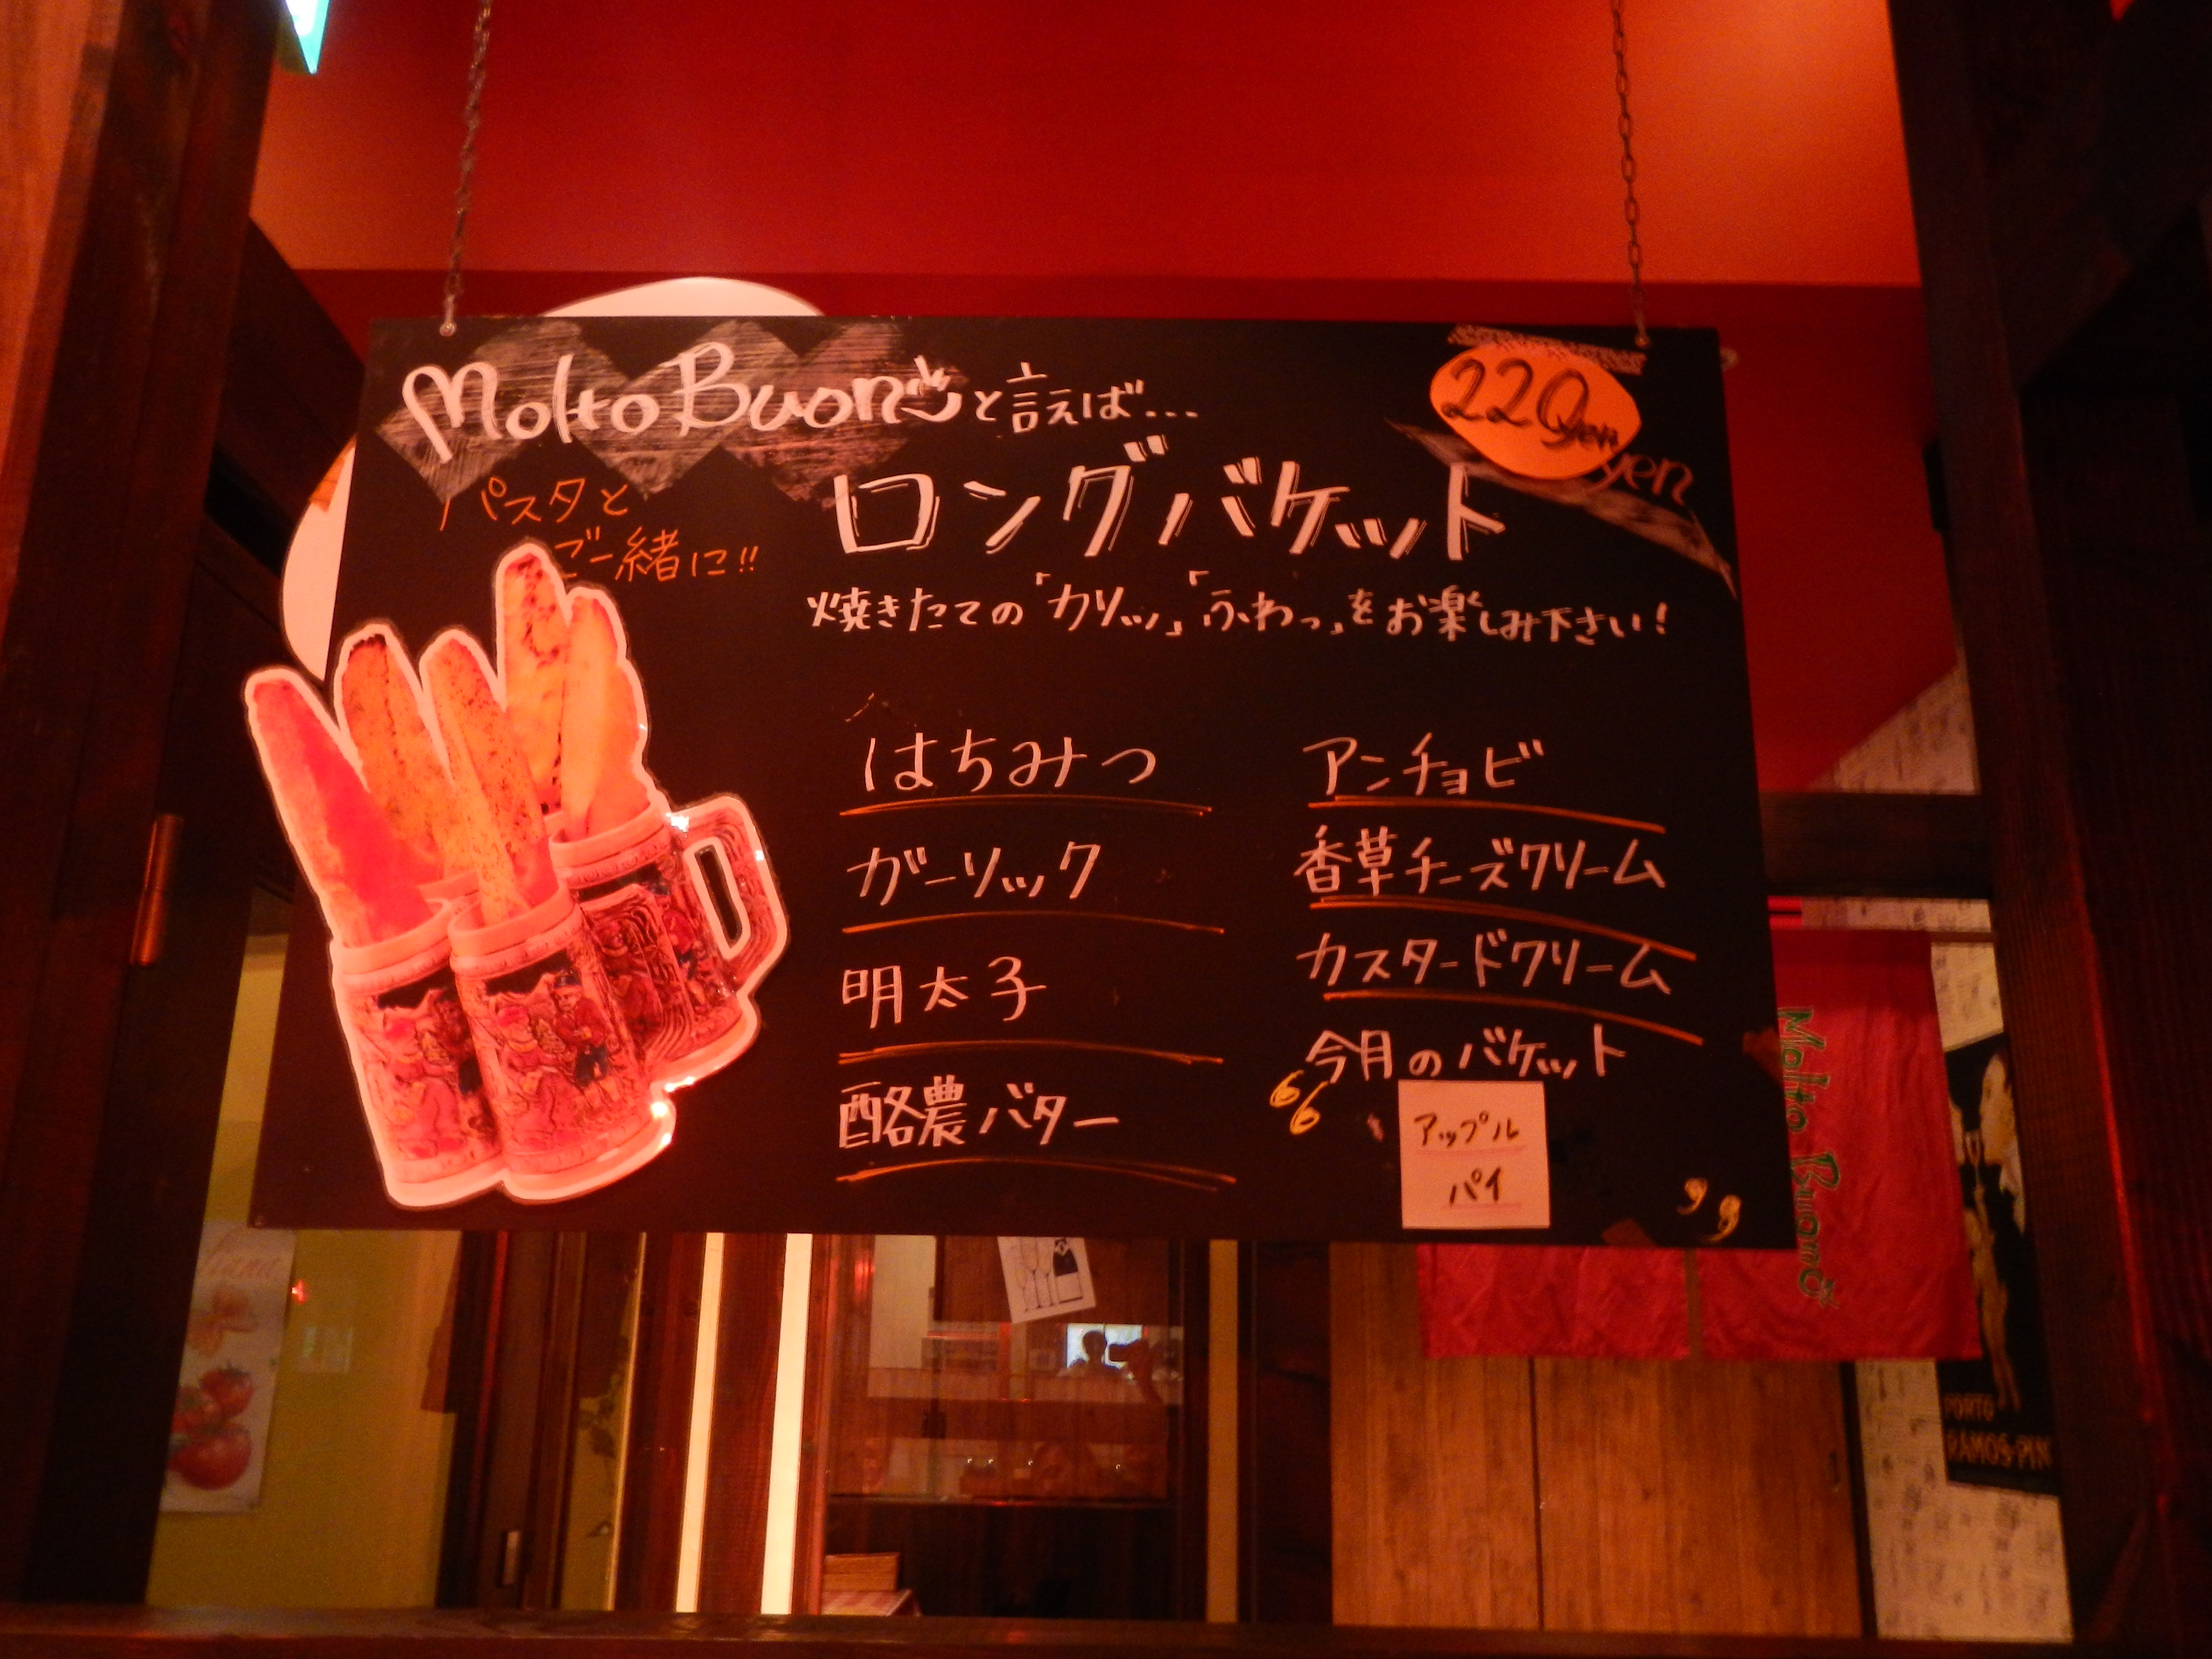 Molto Buonoと言えば...
220yen
yen
パスタと
ご一緒に!!
ロングバケット
焼きたての「カリッ」「ふわっ」をお楽しみ下さい!
はちみつ
ガーリック
明太子
酪農バター
アンチョビ
香草チーズクリーム
カスタードクリーム
今月のバケット
“アップル
パイ”
Molto Buono
PORTO
RAMOS-PIN